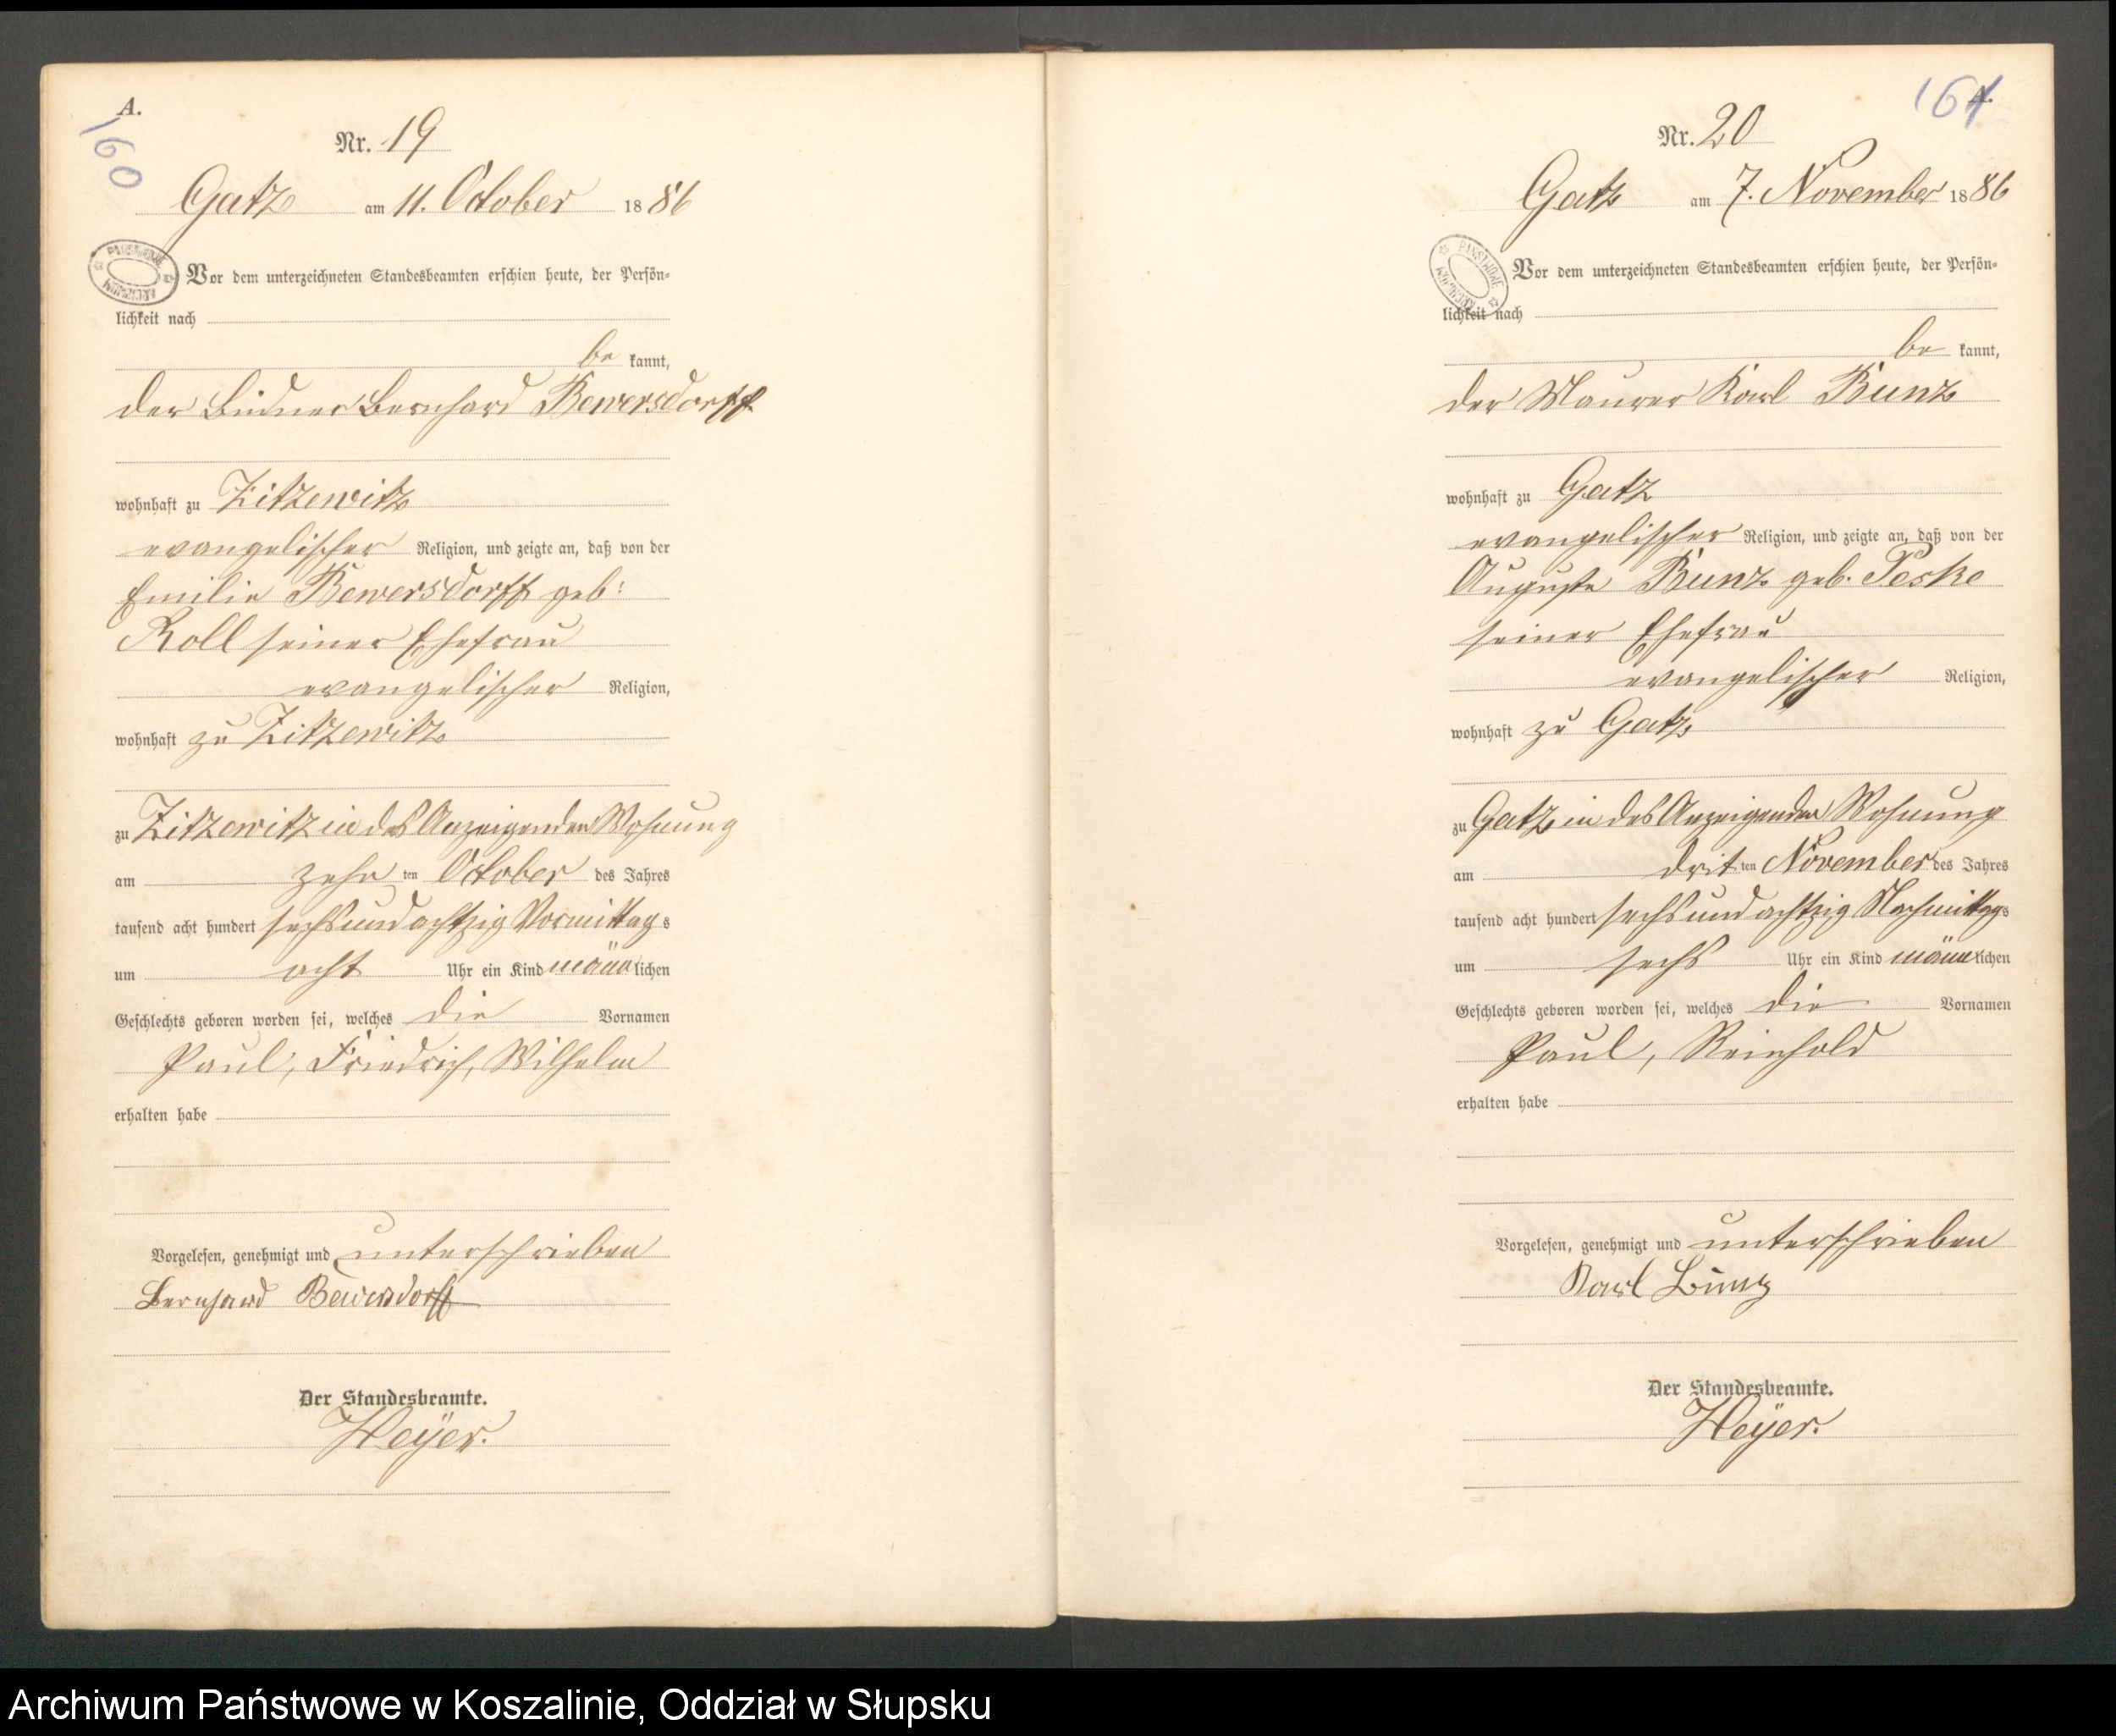 A.
160
Nr. 19
Gatz am 11. October 1886
PAŃSTWOWE
ARCHIWUM
Vor dem unterzeichneten Standesbeamten erschien heute, der Persön-
lichkeit nach
be kannt,
der Büdner Bernhard Bewersdorff
wohnhaft zu Zitzewitz
evangelischer Religion, und zeigte an, daß von der
Emilie Bewersdorff geb:
Roll seiner Ehefrau
evangelischer Religion,
wohnhaft zu Zitzewitz
zu Zitzewitz in des Anzeigenden Wohnung
am zehn ten October des Jahres
tausend acht hundert sechs und achtzig Vormittags
um acht Uhr ein Kind männlichen
Geschlechts geboren worden sei, welches die Vornamen
Paul, Friedrich, Wilhelm
erhalten habe
Vorgelesen, genehmigt und unterschrieben
Bernhard Bewersdorff
Der Standesbeamte.
Heÿer.
A.
161
Nr. 20
Gatz am 7. November 1886
PAŃSTWOWE
ARCHIWUM
Vor dem unterzeichneten Standesbeamten erschien heute, der Persön-
lichkeit nach
be kannt,
der Maurer Karl Bunz
wohnhaft zu Gatz
evangelischer Religion, und zeigte an, daß von der
Auguste Bunz geb. Peske
seiner Ehefrau
evangelischer Religion,
wohnhaft zu Gatz
zu Gatz in des Anzeigenden Wohnung
am drit ten November des Jahres
tausend acht hundert sechs und achtzig Nachmittags
um sechs Uhr ein Kind männlichen
Geschlechts geboren worden sei, welches die Vornamen
Paul, Reinhold
erhalten habe
Vorgelesen, genehmigt und unterschrieben
Karl Bunz
Der Standesbeamte.
Heÿer.
Archiwum Państwowe w Koszalinie, Oddział w Słupsku